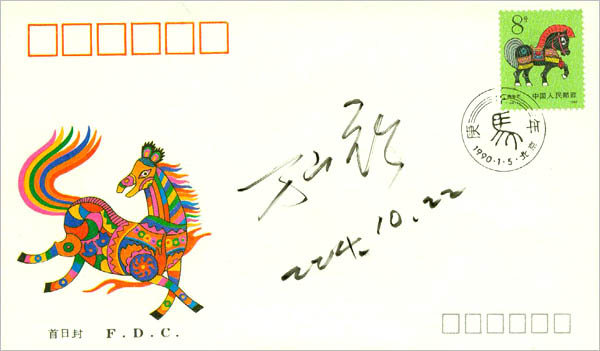 8分
中国人民邮政
庚馬年
1990·1·5·北京
2004.10.22
首日封 F.D.C.